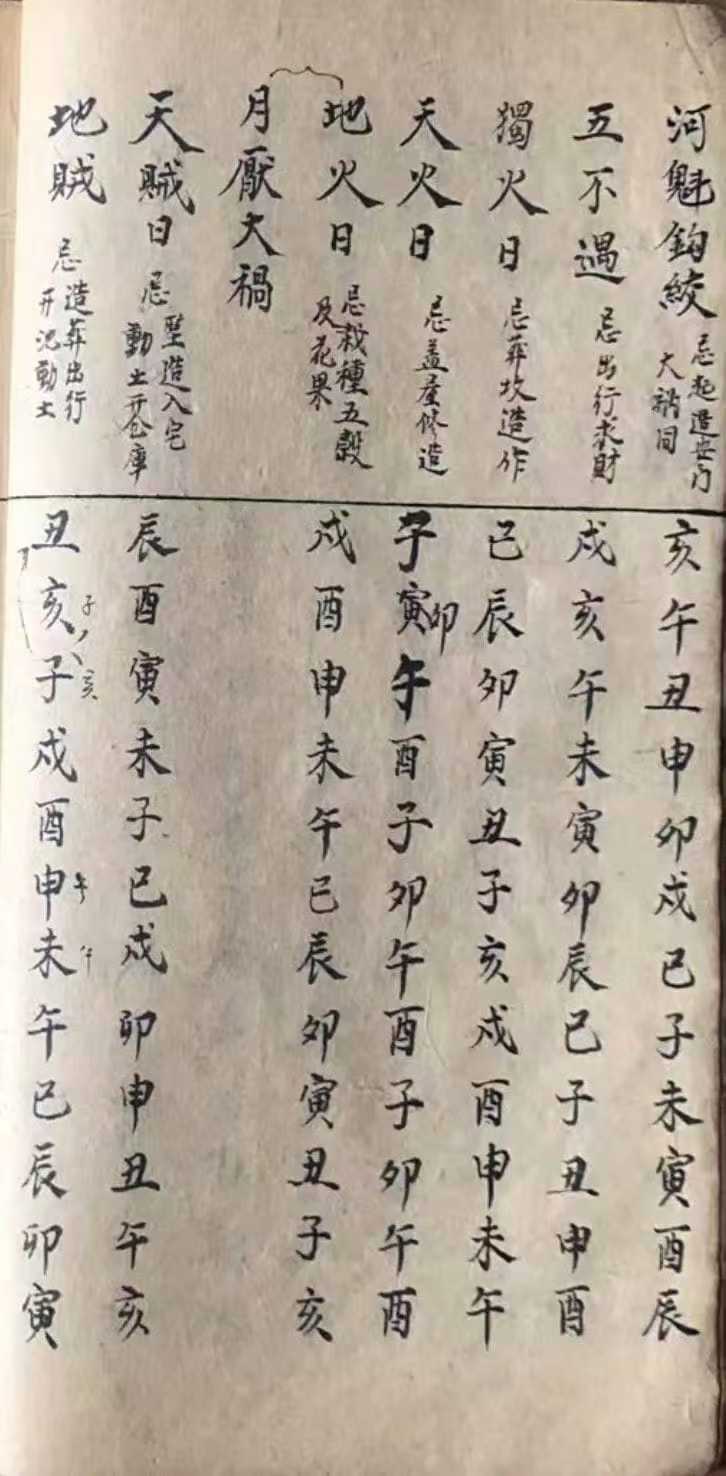 河魁鈎絞 忌起造安门大 同
亥午丑申卯戌巳子未寅酉辰
五不遇 忌出行求財
戌亥午未寅卯辰巳子丑申酉
獨火日 忌葬坟造作
巳辰卯寅丑子亥戌酉申未午
天火日 忌盖屋修造
子寅卯午酉子卯午酉子卯午酉
地火日 忌栽種五穀及花果
月厭大禍
戌酉申未午巳辰卯寅丑子亥
天賊日 忌竪造入宅動土开仓庫
辰酉寅未子巳戌卯申丑午亥
地賊 忌造葬出行开池動土
丑亥子戌酉申未午巳辰卯寅
子 亥 午 午